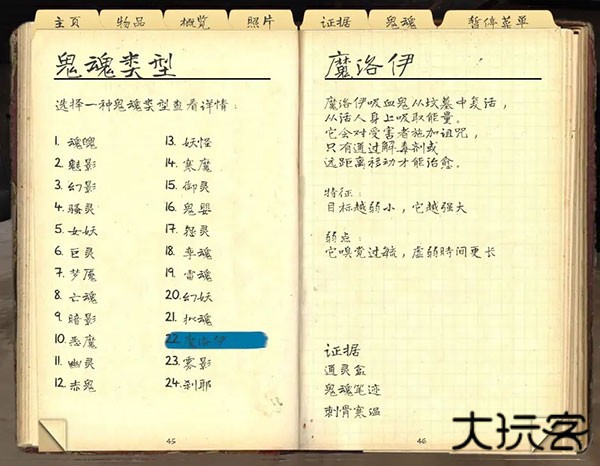 主页 物品 概览 照片 证据 鬼魂 暂停菜单
鬼魂类型
选择一种鬼魂类型查看详情：
1. 魂魄
2. 魅影
3. 幻影
4. 骚灵
5. 女妖
6. 巨灵
7. 梦魇
8. 亡魂
9. 暗影
10. 恶魔
11. 幽灵
12. 赤鬼
13. 妖怪
14. 寒魔
15. 御灵
16. 鬼婴
17. 怨灵
18. 孪魂
19. 雷魂
20. 幻妖
21. 拟魂
22. 魔洛伊
23. 雾影
24. 刹耶
45
魔洛伊
魔洛伊吸血鬼从坟墓中复活，
从活人身上吸取能量。
它会对受害者施加诅咒，
只有通过解毒剂或
远距离移动才能治愈。
特征：
目标越弱小，它越强大
弱点：
它嗅觉过敏，虚弱时间更长
证据
通灵盒
鬼魂笔迹
刺骨寒温
46
大玩客